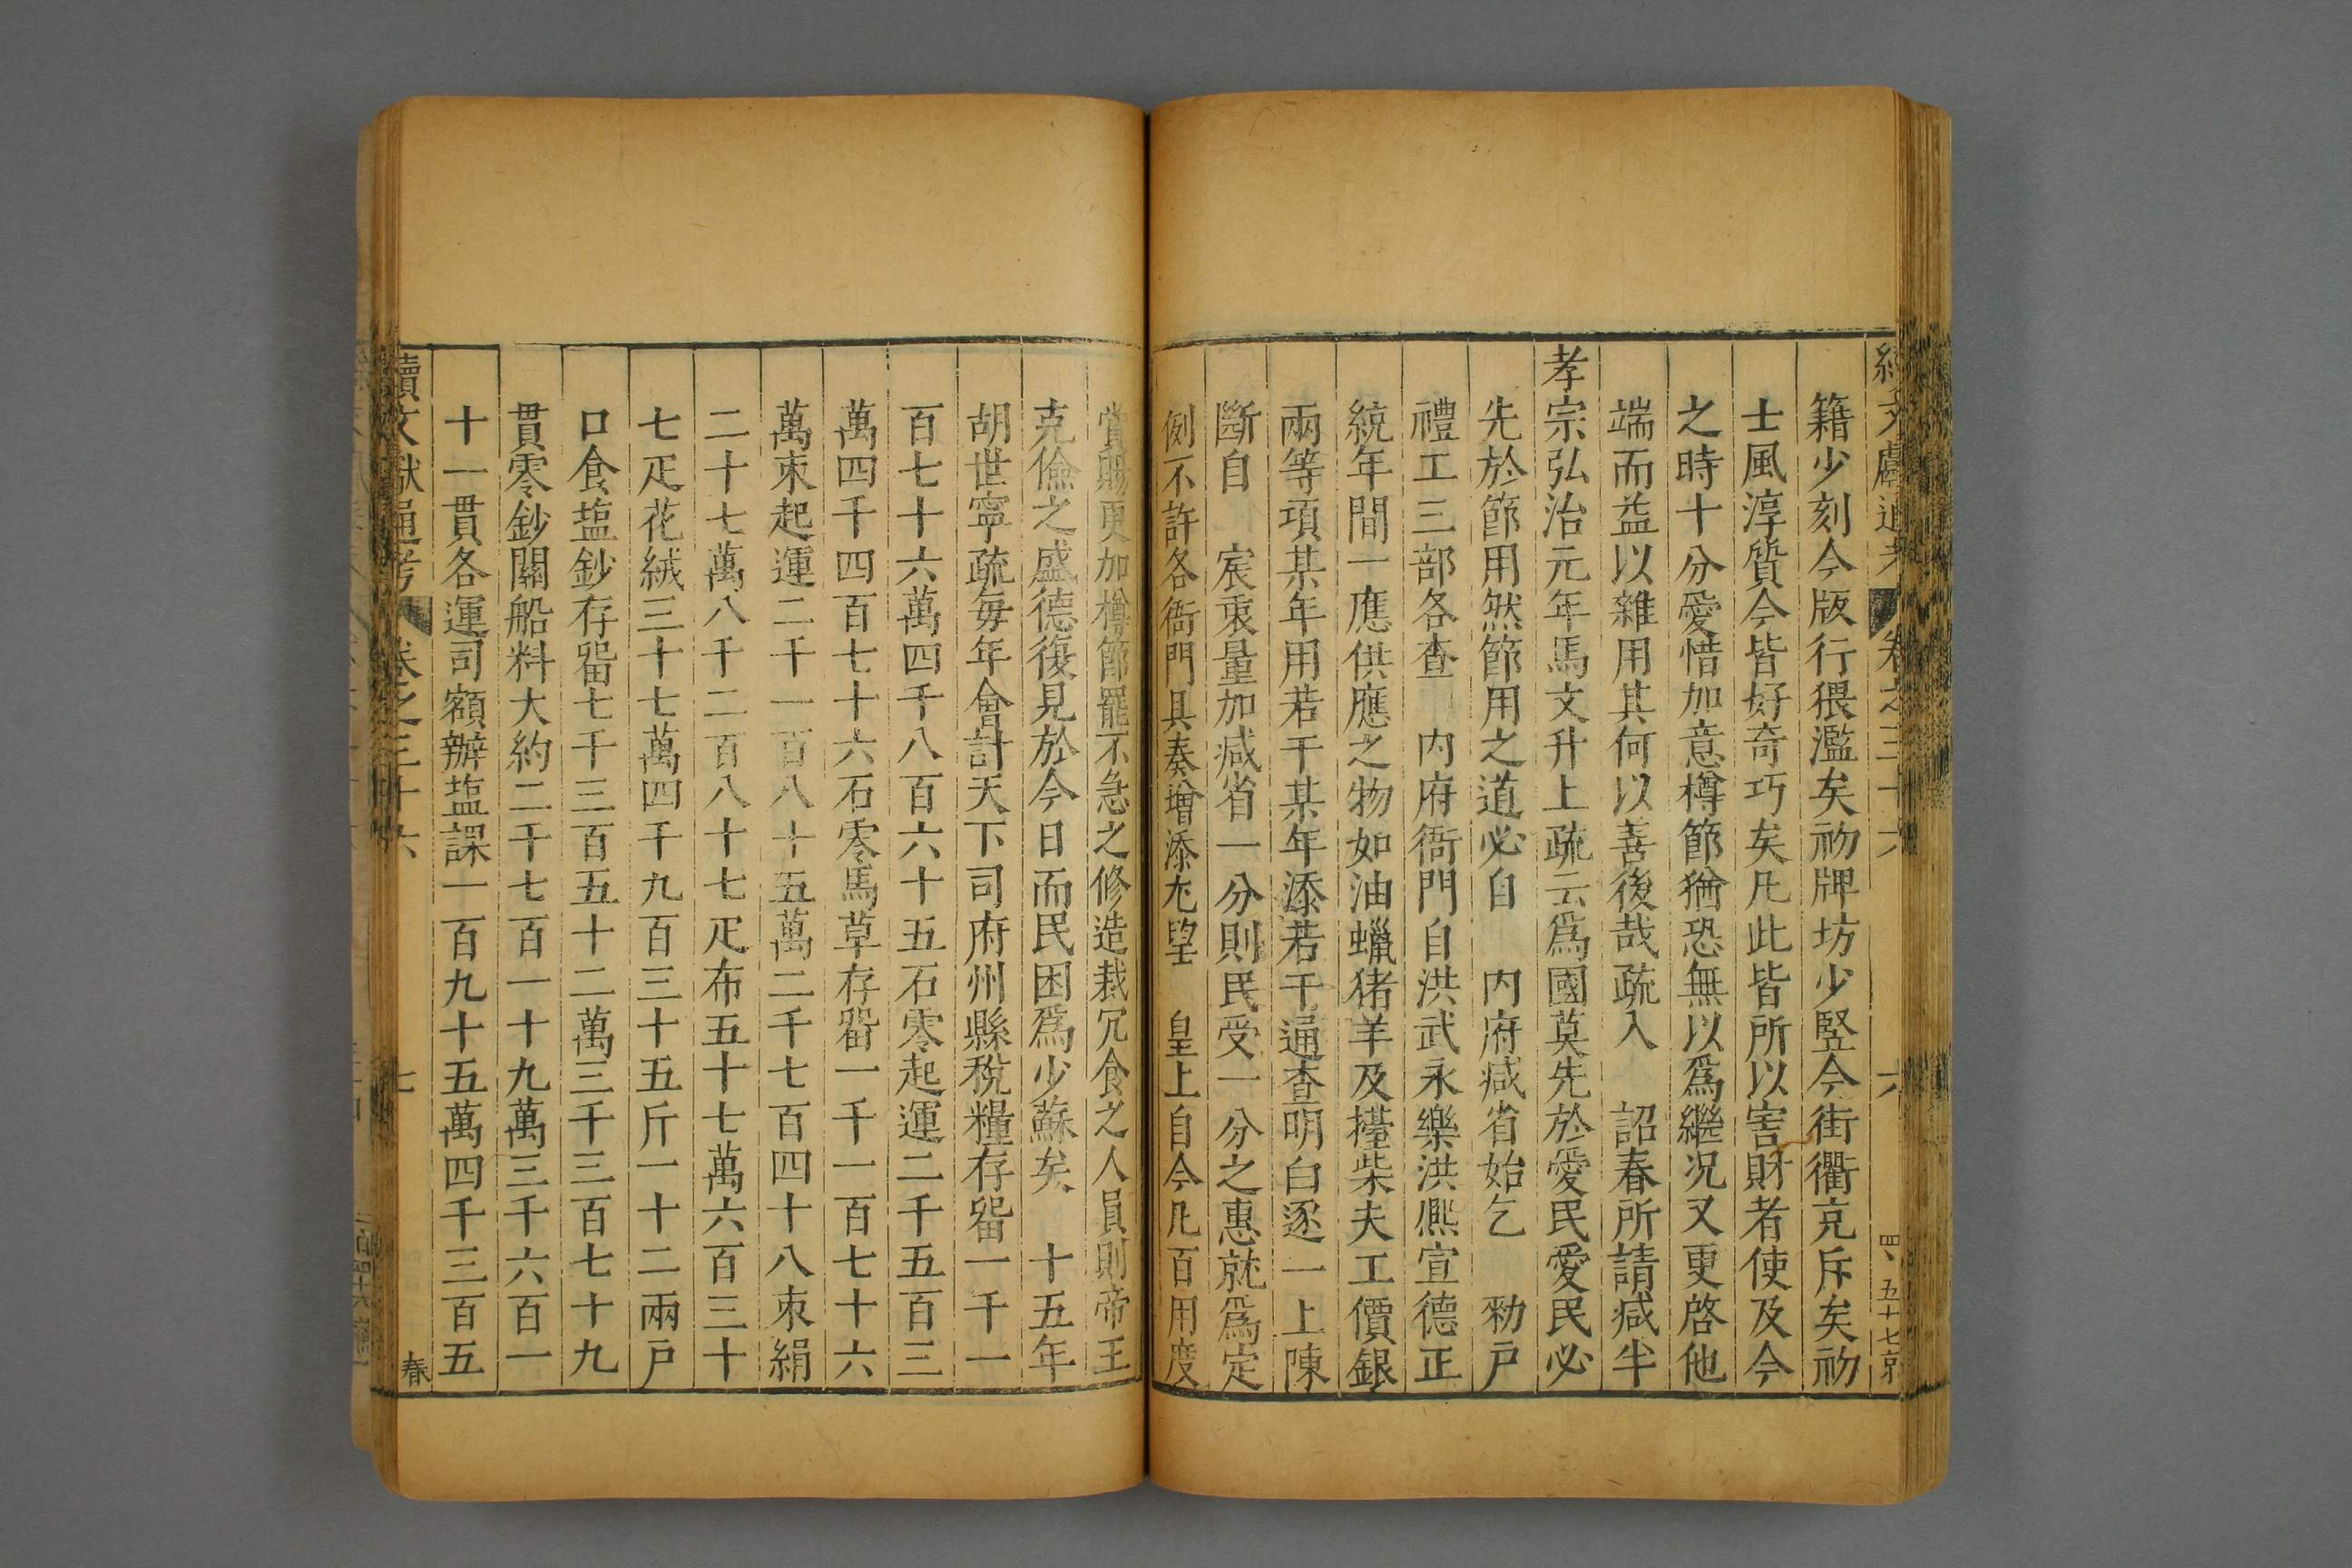 籍少刻今版行猥濫矣初牌坊少竪今街衢充斥矣初
士風淳質今皆好奇巧矣凡此皆所以害財者使及今
之時十分愛惜加意樽節猶恐無以爲繼况又更啓他
端而益以雜用其何以善後哉疏入 詔春所請减半
孝宗弘治元年馬文升上疏云爲國莫先於愛民愛民必
先於節用然節用之道必自 内府减省始乞 勑戸
禮工三部各查 内府衙門自洪武永樂洪熈宣德正
統年間一應供應之物如油蠟猪羊及擡柴夫工價銀
兩等項某年用若干某年添若干逼查明白逐一上陳
斷自 宸衷量加减省一分則民受一分之惠就爲定
例不許各衙門具奏增添尤望 皇上自今凡百用度
賞賜更加樽節罷不急之修造裁冗食之人員則帝王
克儉之盛德復見於今日而民困爲少蘇矣 十五年
胡世寧疏每年會計天下司府州縣稅糧存畱一千一
百七十六萬四千八百六十五石零起運二千五百三
萬四千四百七十六石零馬草存畱一千一百七十六
萬束起運二千一百八十五萬二千七百四十八束絹
二十七萬八千二百八十七疋布五十七萬六百三十
七疋花絨三十七萬四千九百三十五斤一十二兩戸
口食塩鈔存畱七千三百五十二萬三千三百七十九
貫零鈔關船料大約二千七百一十九萬三千六百一
十一貫各運司額辦塩課一百九十五萬四千三百五
續文獻通考 卷之三十六 七 春